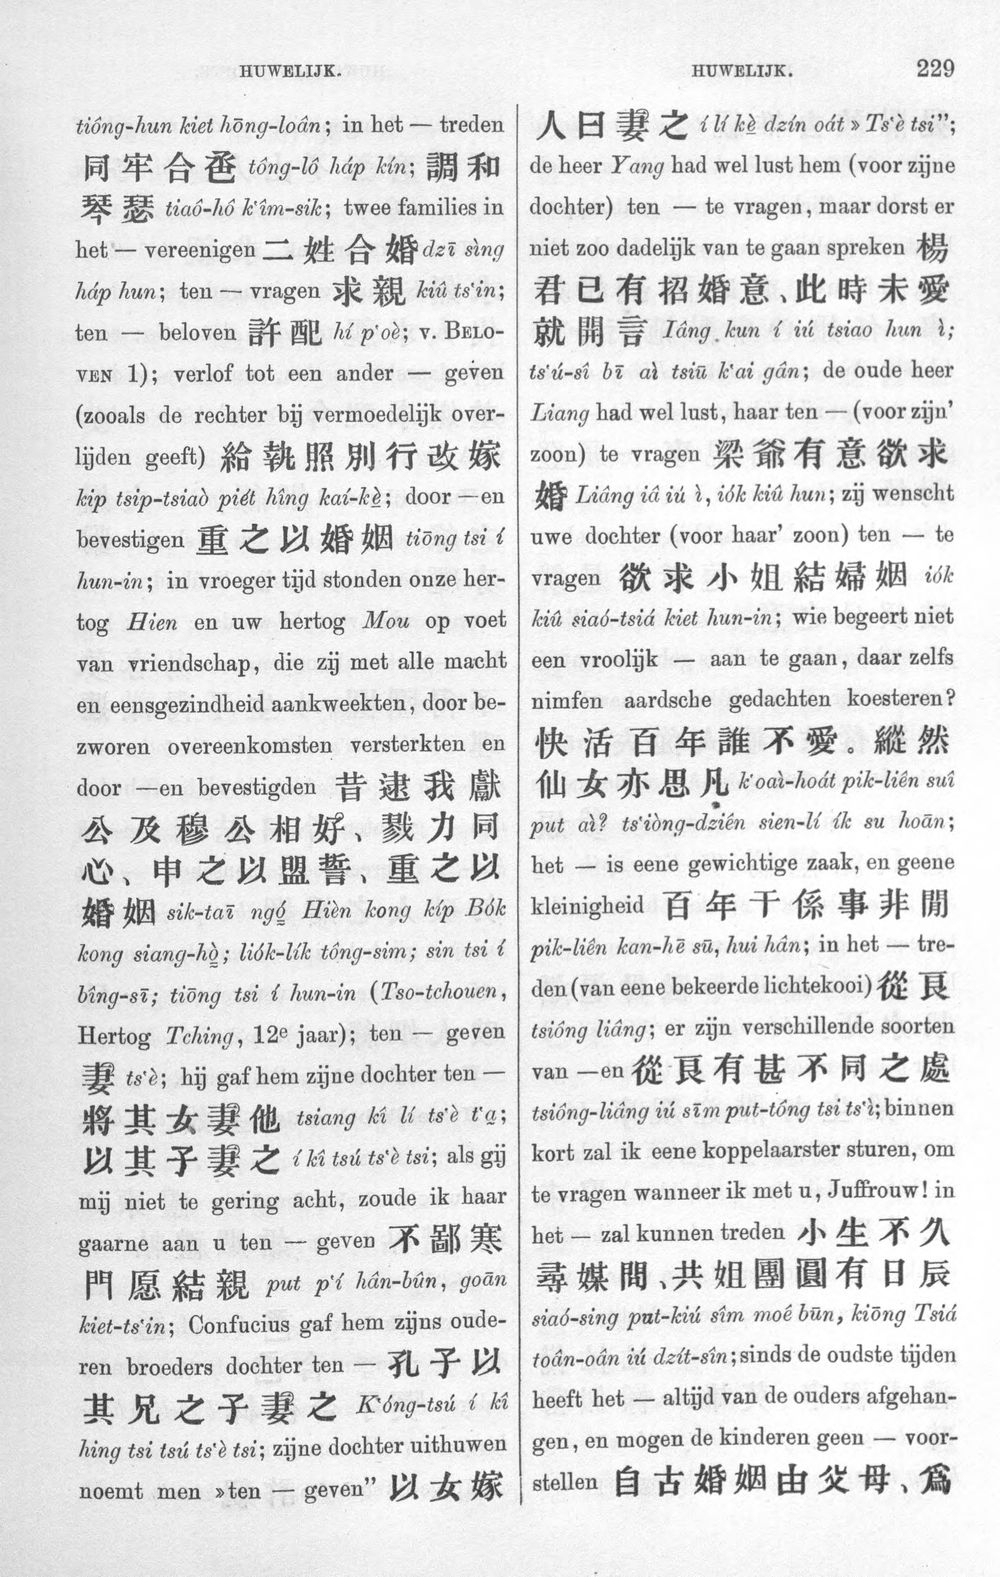 HUWELIJK.
HUWELIJK.
229
tióng-hun kiet hōng-loân; in het — treden
同牢合卺 tông-lô háp kín; 調和
琴瑟 tiaô-hô k'îm-sik; twee families in
het — vereenigen 二姓合婚 dzī sìng
háp hun; ten — vragen 求親 kiû ts'in;
ten — beloven 許配 hí p'oè; v. BELO-
VEN 1); verlof tot een ander — geven
(zooals de rechter bij vermoedelijk over-
lijden geeft) 給執照別行改嫁
kip tsip-tsiaò piét hîng kaí-kè; door —en
bevestigen 重之以婚姻 tiōng tsi í
hun-in; in vroeger tijd stonden onze her-
tog Hien en uw hertog Mou op voet
van vriendschap, die zij met alle macht
en eensgezindheid aankweekten, door be-
zworen overeenkomsten versterkten en
door —en bevestigden 昔逮我獻
公及穆公相好、戮力同
心、申之以盟誓、重之以
婚姻 sik-taī ngó Hièn kong kíp Bók
kong siang-hò; liók-lík tông-sim; sin tsi í
bîng-sī; tiōng tsi í hun-in (Tso-tchouen,
Hertog Tching, 12e jaar); ten — geven
妻 ts'è; hij gaf hem zijne dochter ten —
將其女妻他 tsiang kî lí ts'è t'a;
以其子妻之 í kî tsú ts'è tsi; als gij
mij niet te gering acht, zoude ik haar
gaarne aan u ten — geven 不鄙寒
門愿結親 put p'í hân-bûn, goān
kiet-ts'in; Confucius gaf hem zijns oude-
ren broeders dochter ten — 孔子以
其兄之子妻之 K'óng-tsú í kî
hing tsi tsú ts'è tsi; zijne dochter uithuwen
noemt men »ten — geven" 以女嫁
人曰妻之 í lí kè dzín oát »Ts'è tsi";
de heer Yang had wel lust hem (voor zijne
dochter) ten — te vragen, maar dorst er
niet zoo dadelijk van te gaan spreken 楊
君已有招婚意、此時未愛
就開言 Iâng kun í iú tsiao hun ì;
ts'ú-sî bī aì tsiū k'ai gân; de oude heer
Liang had wel lust, haar ten — (voor zijn'
zoon) te vragen 梁爺有意欲求
婚 Liâng iâ iú ì, iók kiû hun; zij wenscht
uwe dochter (voor haar' zoon) ten — te
vragen 欲求小姐結婦姻 iók
kiû siaó-tsiá kiet hun-in; wie begeert niet
een vroolijk — aan te gaan, daar zelfs
nimfen aardsche gedachten koesteren?
快活百年誰不愛。縱然
仙女亦思凡 k'oaì-hoát pik-liên suî
put aì? ts'iòng-dzién sien-lí ík su hoān;
het — is eene gewichtige zaak, en geene
kleinigheid 百年干係事非閒
pik-liên kan-hē sū, hui hân; in het — tre-
den (van eene bekeerde lichtekooi) 從良
tsióng liâng; er zijn verschillende soorten
van —en 從良有甚不同之處
tsióng-liâng iú sīm put-tông tsi ts'ì; binnen
kort zal ik eene koppelaarster sturen, om
te vragen wanneer ik met u, Juffrouw! in
het — zal kunnen treden 小生不久
尋媒問、共姐團圓有日辰
siaó-sing put-kiú sîm moê būn, kiōng Tsiá
toân-oân iú dzít-sîn; sinds de oudste tijden
heeft het — altijd van de ouders afgehan-
gen, en mogen de kinderen geen — voor-
stellen 自古婚姻由父母、爲